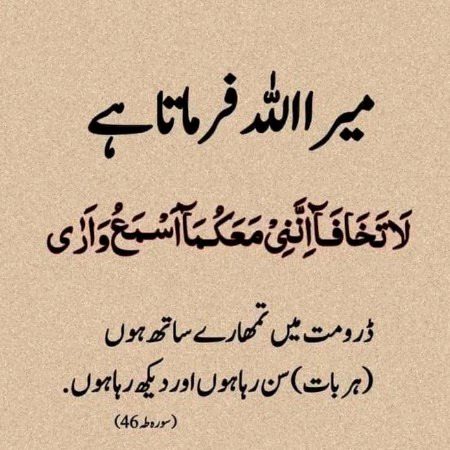 میرا اللہ فرماتا ہے
لَا تَخَافَآ اِنَّنِیْ مَعَکُمَآ اَسْمَعُ وَاَرٰی
ڈرو مت میں تمھارے ساتھ ہوں
(ہر بات) سن رہا ہوں اور دیکھ رہا ہوں.
(سورہ طہ 46)